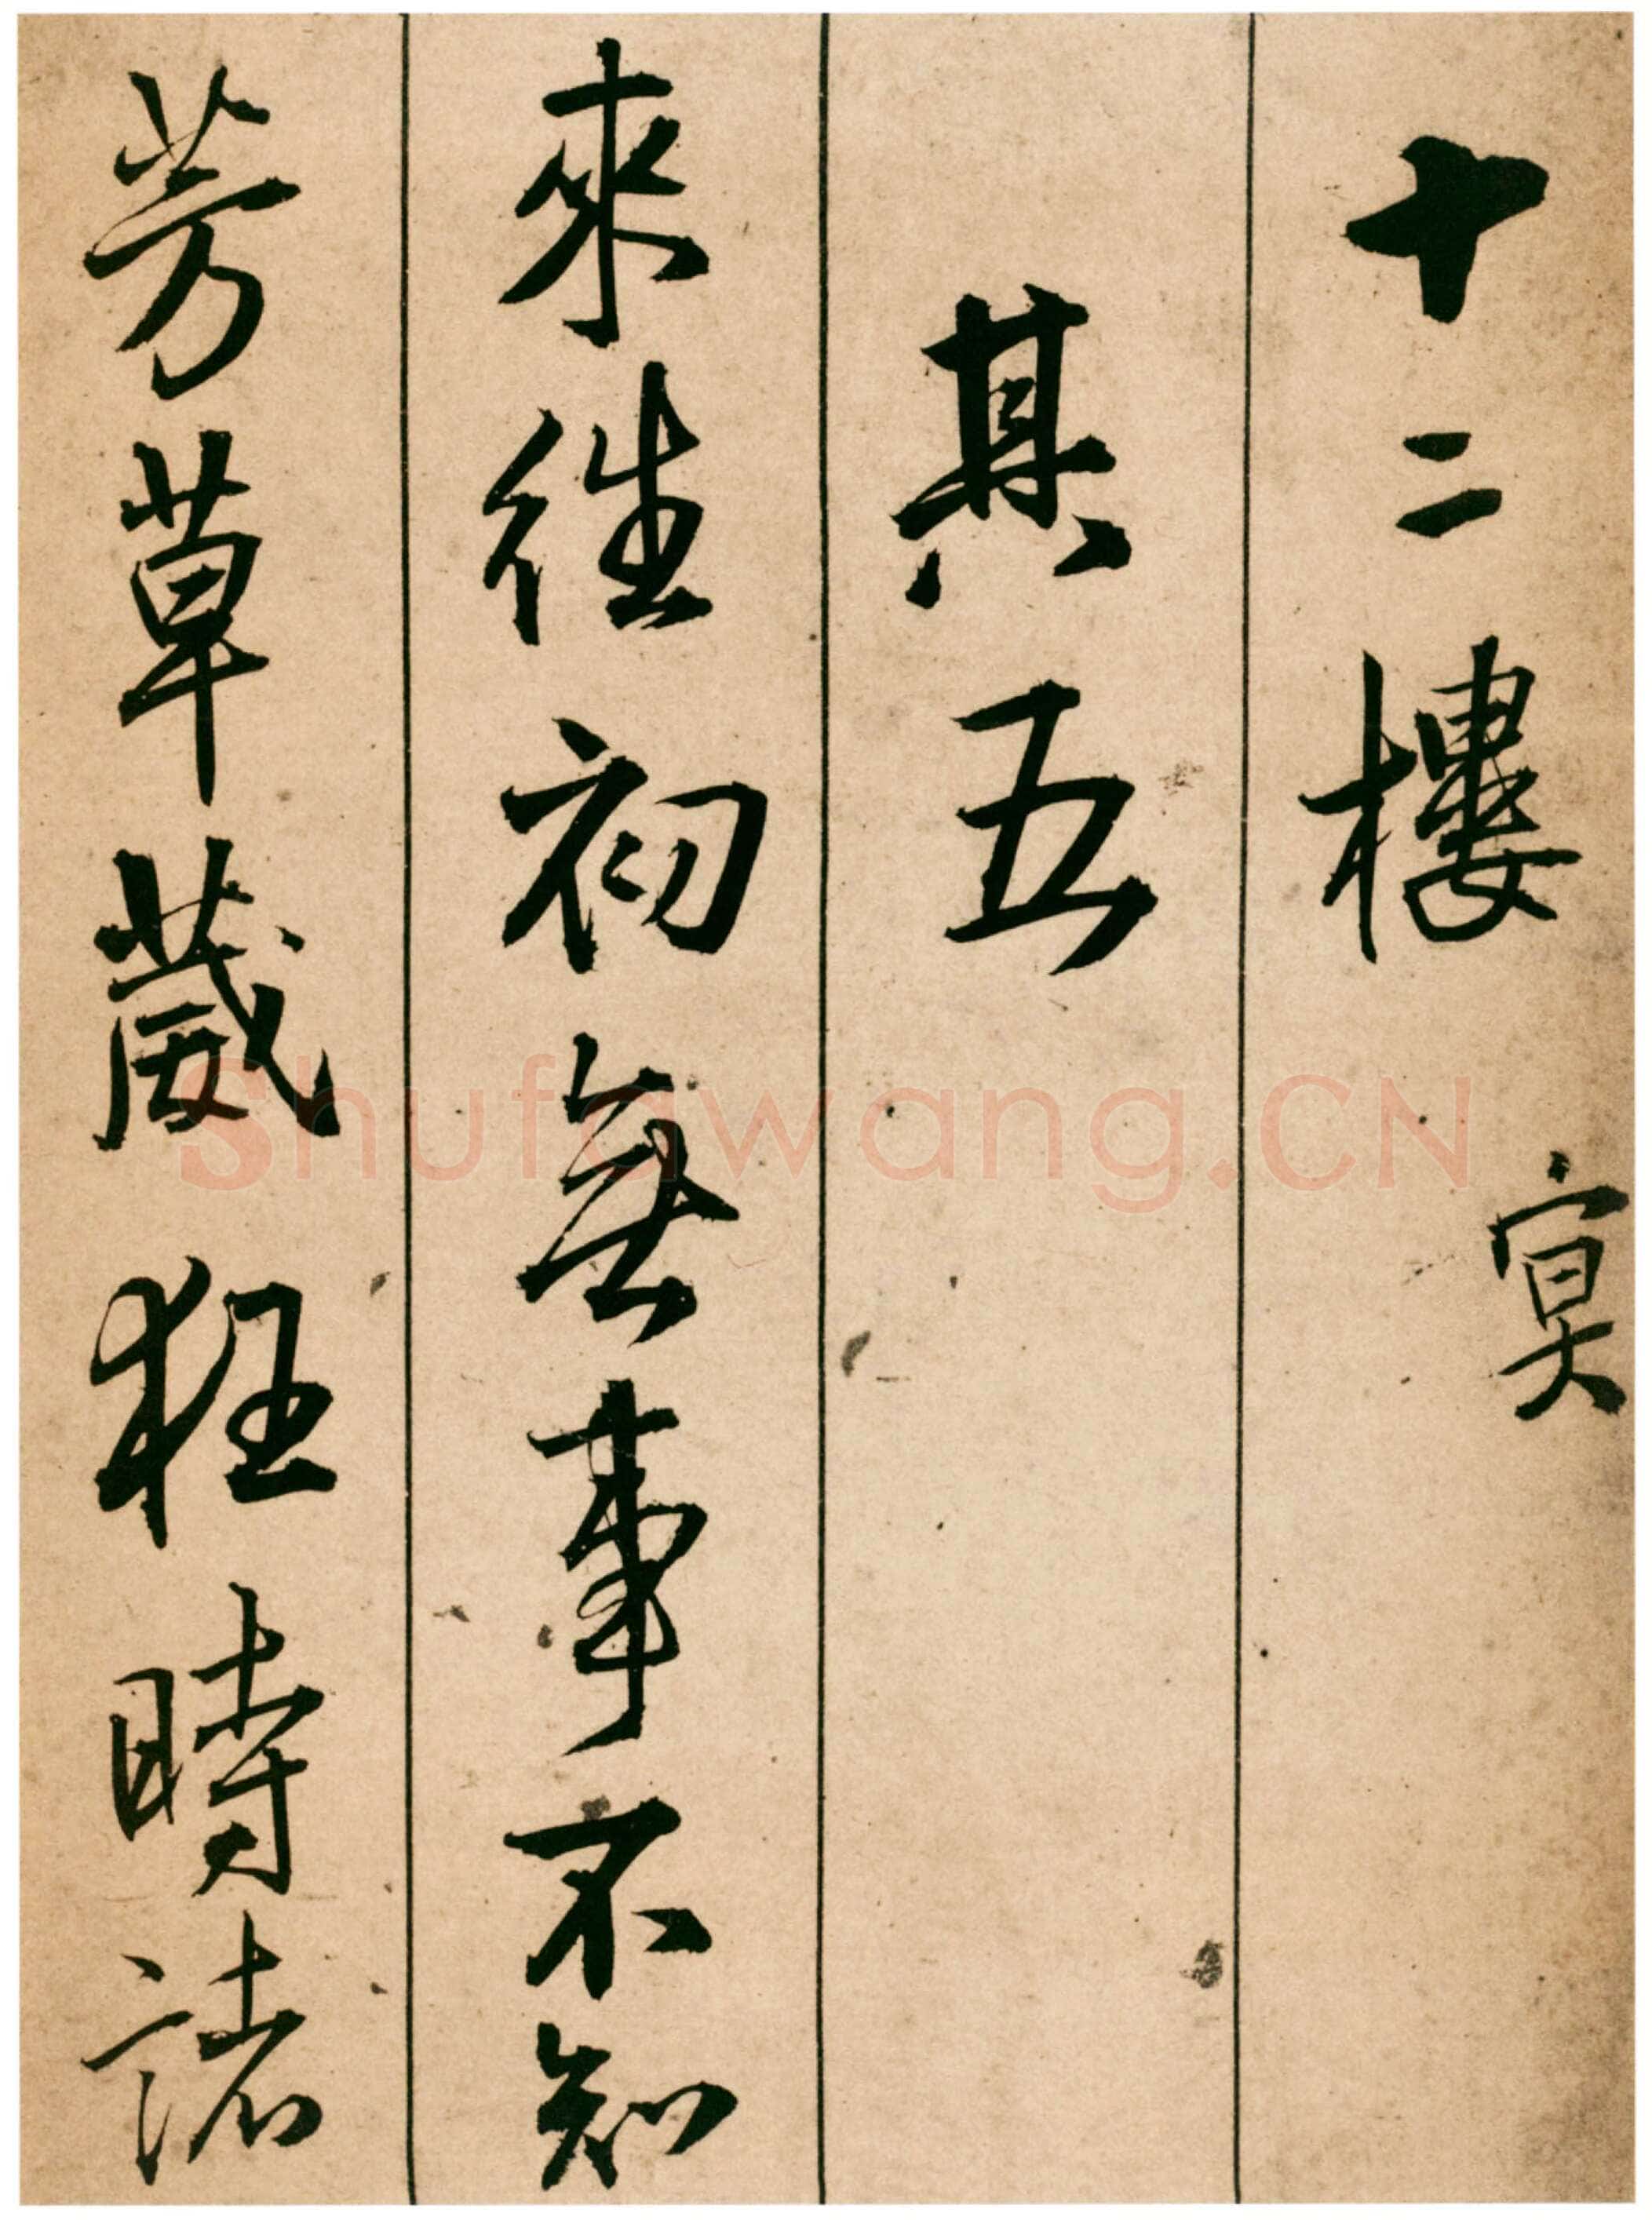 十二樓
冥
其五
來往初無事不知
芳草葳狂時諸
Shufawang.CN